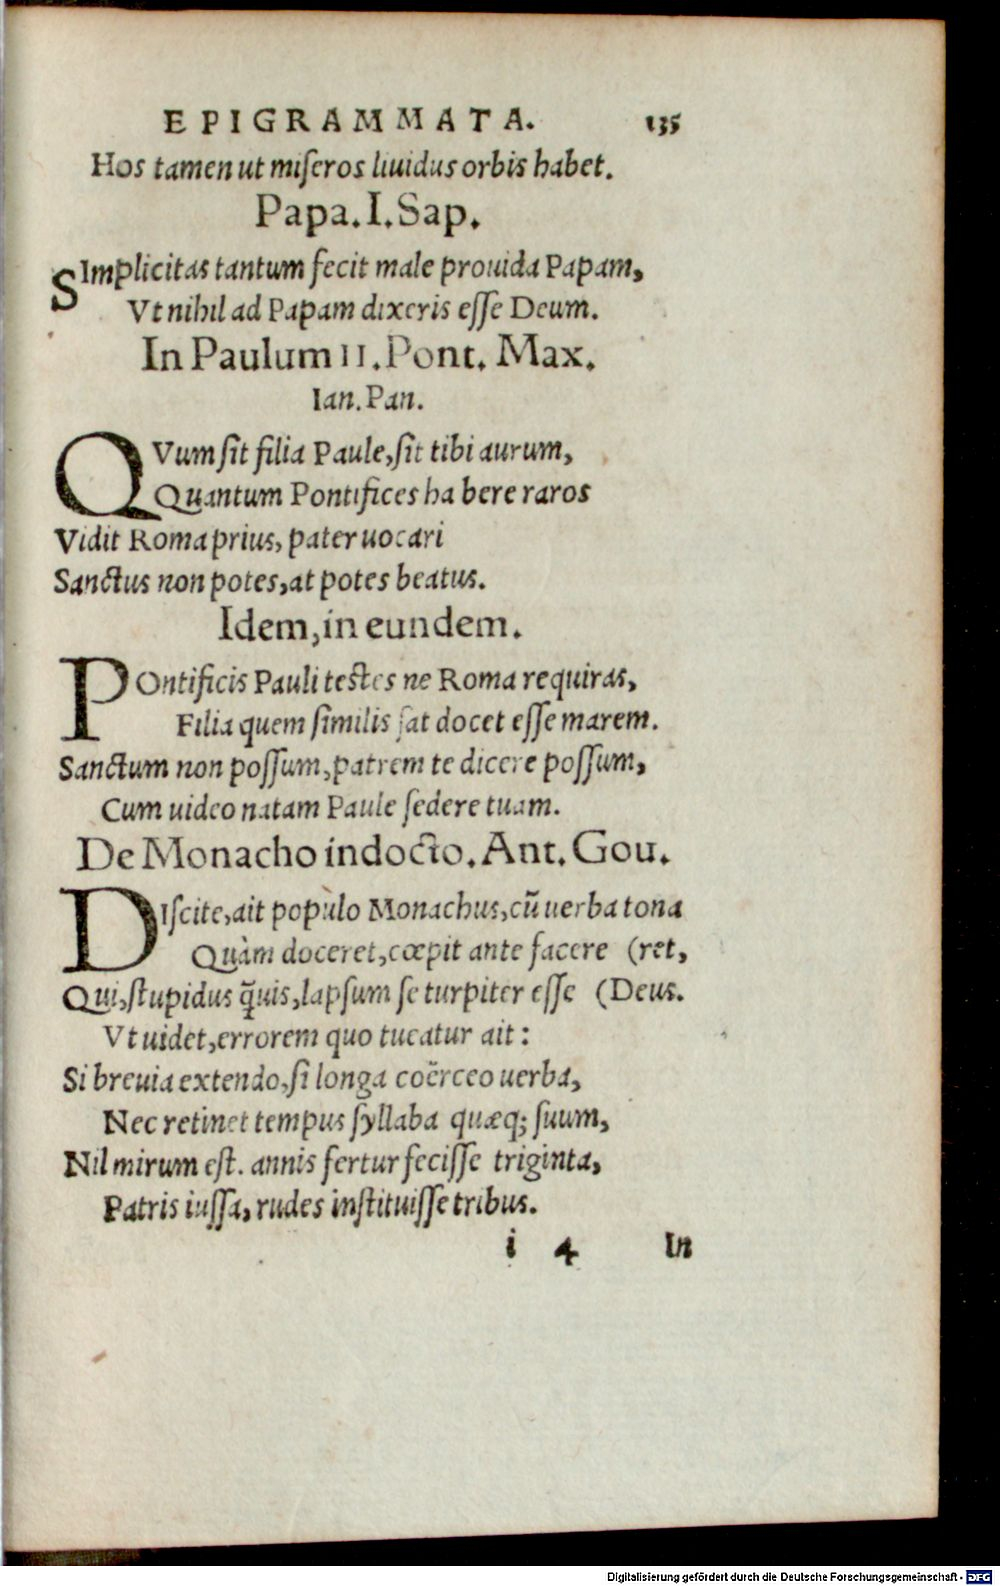 EPIGRAMMATA. 135
Hos tamen ut miſeros liuidus orbis habet.
Papa. I. Sap.
SImplicitas tantum fecit male prouida Papam,
Vt nihil ad Papam dixeris eſſe Deum.
In Paulum II. Pont. Max.
Ian. Pan.
QVum ſit filia Paule, ſit tibi aurum,
Quantum Pontifices ha bere raros
Vidit Roma prius, pater uocari
Sanctus non potes, at potes beatus.
Idem, in eundem.
POntificis Pauli testes ne Roma requiras,
Filia quem ſimilis ſat docet eſſe marem.
Sanctum non poſſum, patrem te dicere poſſum,
Cum uideo natam Paule ſedere tuam.
De Monacho indocto. Ant. Gou.
DIſcite, ait populo Monachus, cũ uerba tona
Quàm doceret, cœpit ante facere (ret,
Qui, ſtupidus q̃uis, lapſum ſe turpiter eſſe (Deus.
Vt uidet, errorem quo tueatur ait:
Si breuia extendo, ſi longa coërceo uerba,
Nec retinet tempus ſyllaba quæq; ſuum,
Nil mirum eſt. annis fertur feciſſe triginta,
Patris iuſſa, rudes inſtituiſſe tribus.
i 4 In
Digitalisierung gefördert durch die Deutsche Forschungsgemeinschaft - DFG